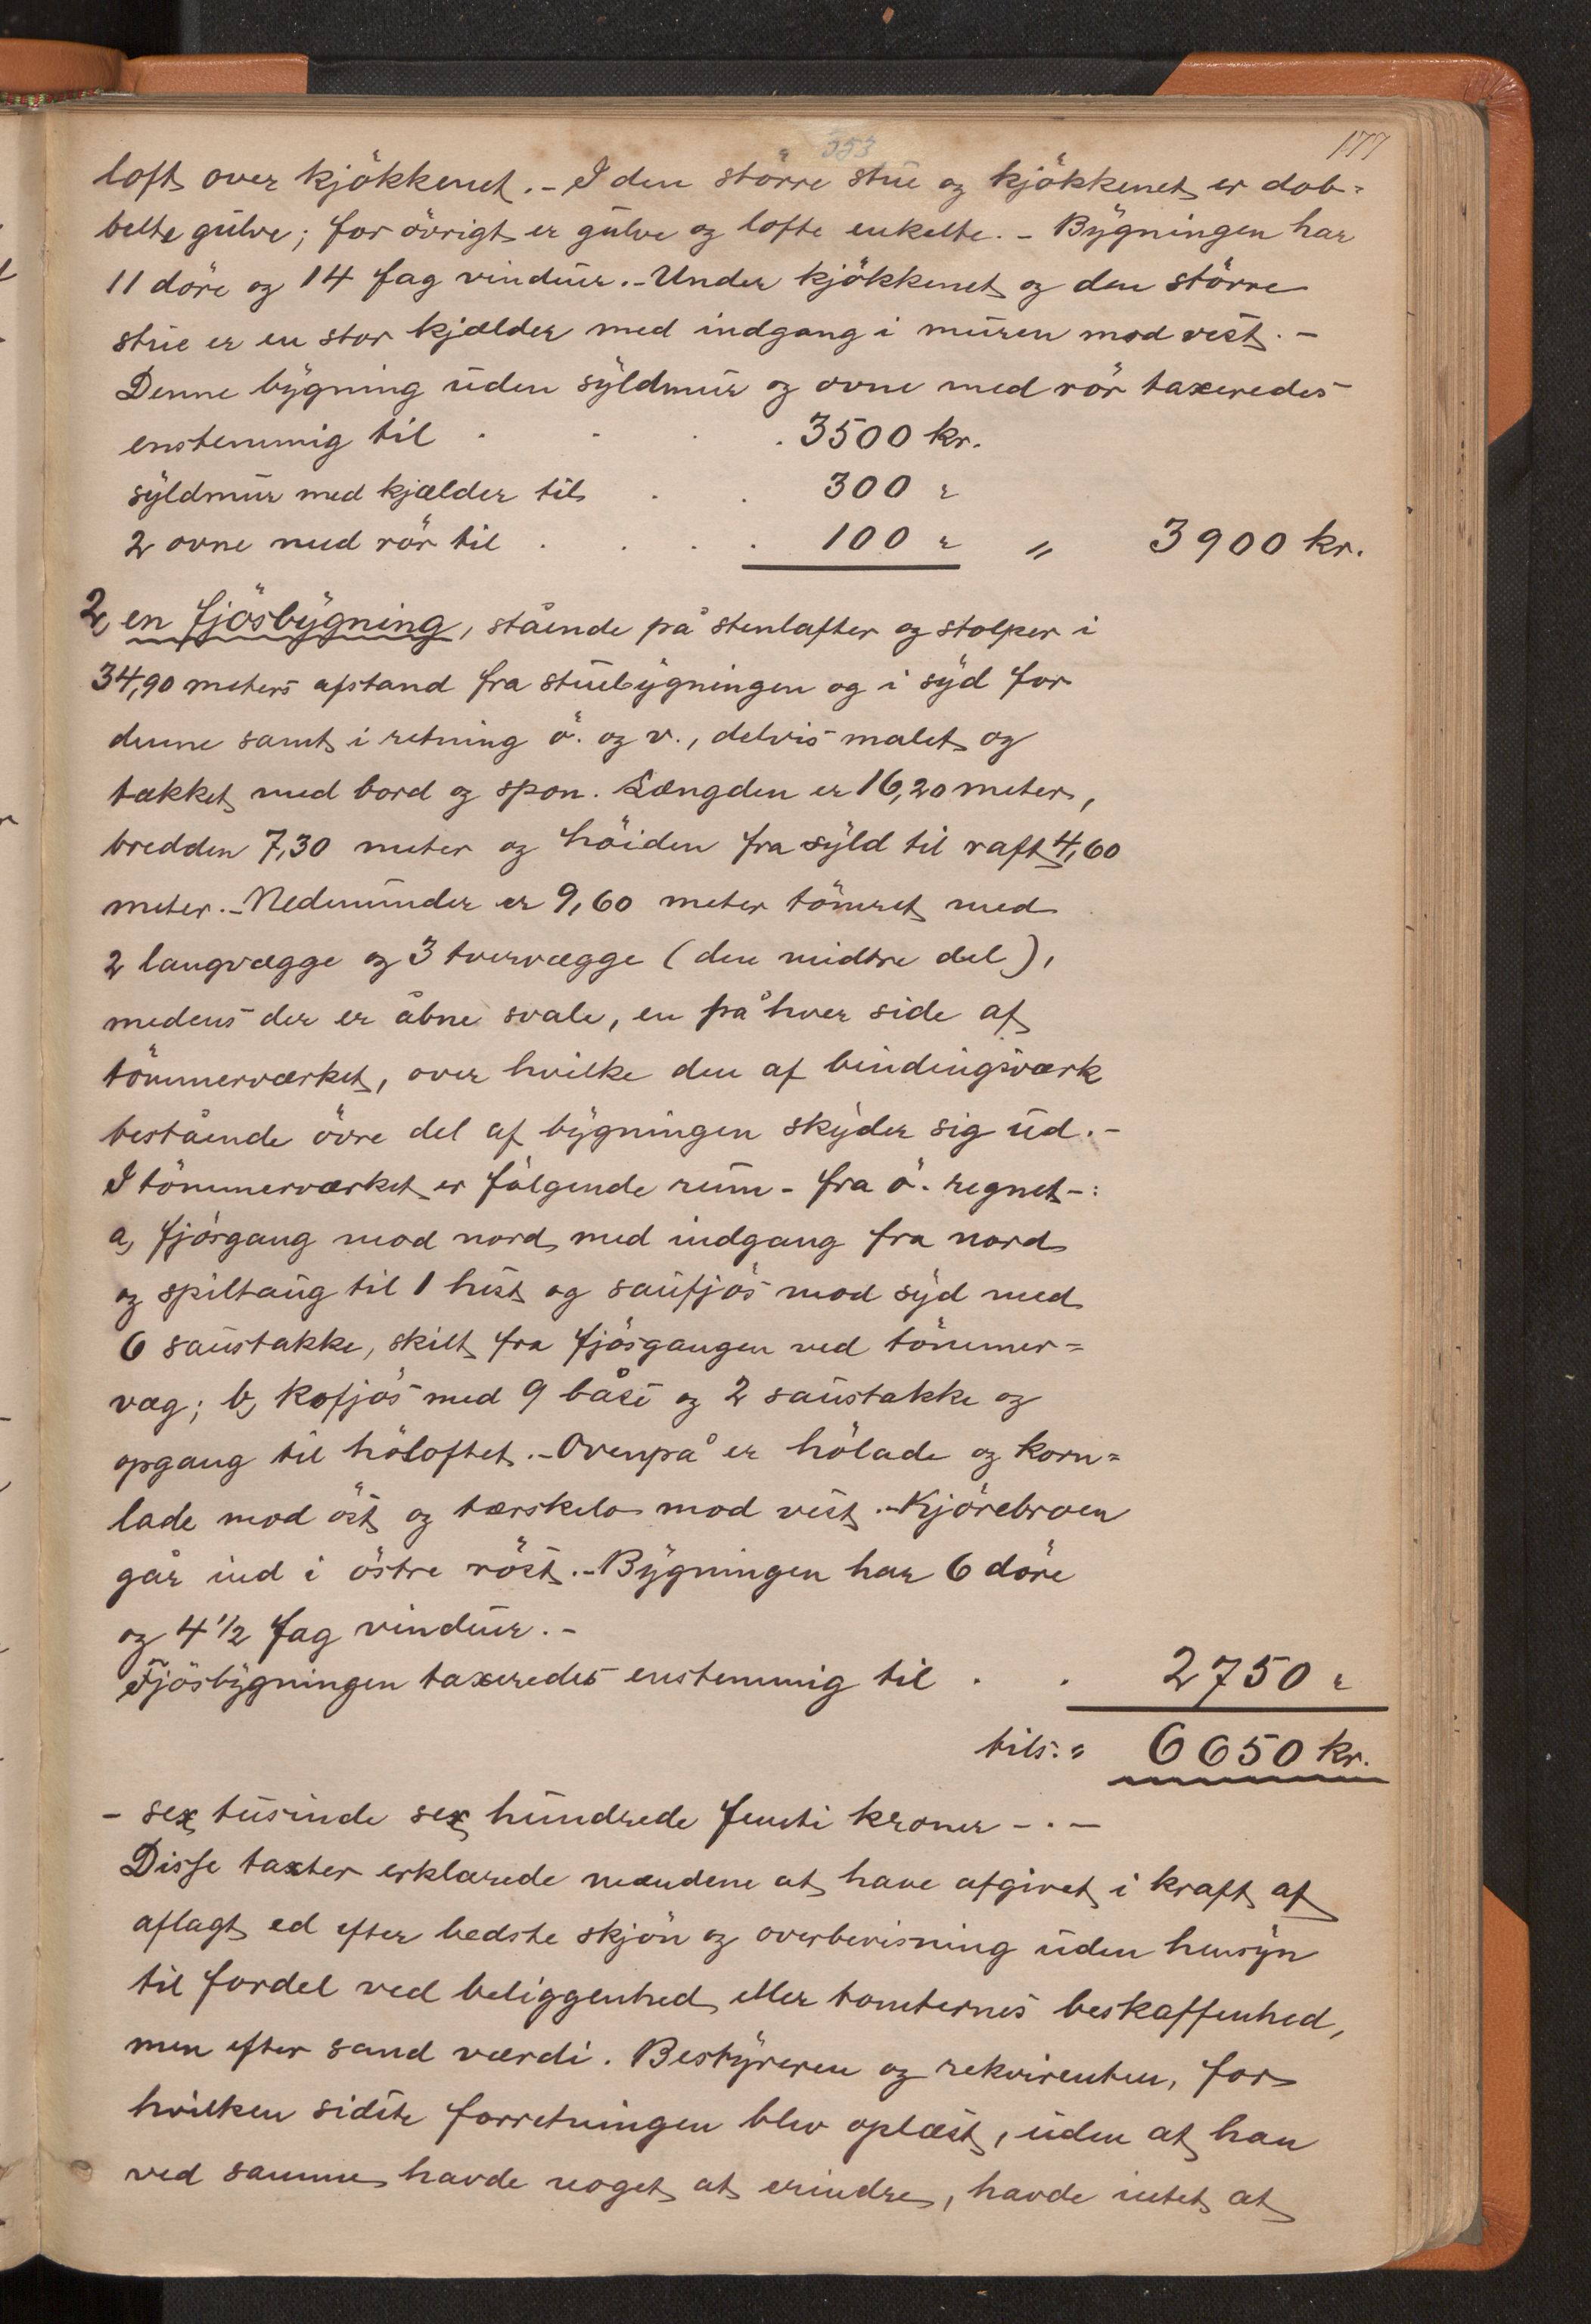 353
177
loft over kjökkenet. - I den större stue og kjökkenet er dob-
belte gulve; for övrigt er gulve og lofte enkelte. - Bygningen har
11 döre og 14 fag vinduer. - Under kjökkenet og den större
stue er en stor kjælder med indgang i muren mod vest. -
Denne bygning uden syldmur og ovne med rör taxeredes
enstemmig til . . . . 3500 kr.
syldmur med kjælder til . . 300 "
2 ovne med rör til . . . . 100 " " 3900 kr.
2, en fjösbygning, stående på stenlafter og stolper i
34,90 meters afstand fra stuebygningen og i syd for
denne samt i retning ö. og v., delvis malet og
tækket med bord og spon. Længden er 16,20 meter,
bredden 7,30 meter og höiden fra syld til raft 4,60
meter. - Nedenunder er 9,60 meter tömret med
2 langvægge og 3 tvervægge (den midtre del),
medens der er åbne svale, en på hver side af
tömmerværket, over hvilke den af bindingsværk
bestående övre del af bygningen skyder sig ud. -
I tömmerværket er fölgende rum - fra ö. regnet -:
a, fjösgang mod nord med indgang fra nord
og spiltaug til 1 hest og saufjös mod syd med
6 saustakke, skilt fra fjösgangen ved tömmer-
væg; b, kofjös med 9 båse og 2 saustakke og
opgang til höloftet. - Ovenpå er hölade og korn-
lade mod öst og tærskelo mod vest. - Kjörebroen
går ind i östre röst. - Bygningen har 6 döre
og 4 1/2 fag vinduer. -
Fjösbygningen taxeredes enstemmig til . . 2750 "
tils: " 6650 kr.
- sex tusinde sex hundrede femti kroner - . -
Disse taxter erklærede mændene at have afgivet i kraft af
aflagt ed efter bedste skjön og overbevisning uden hensyn
til fordel ved beliggenhed eller tomternes beskaffenhed,
men efter sand værdi. Bestyreren og rekvirenten, for
hvilken sidste forretningen blev oplæst, uden at han
ved samme havde noget at erindre, havde intet at